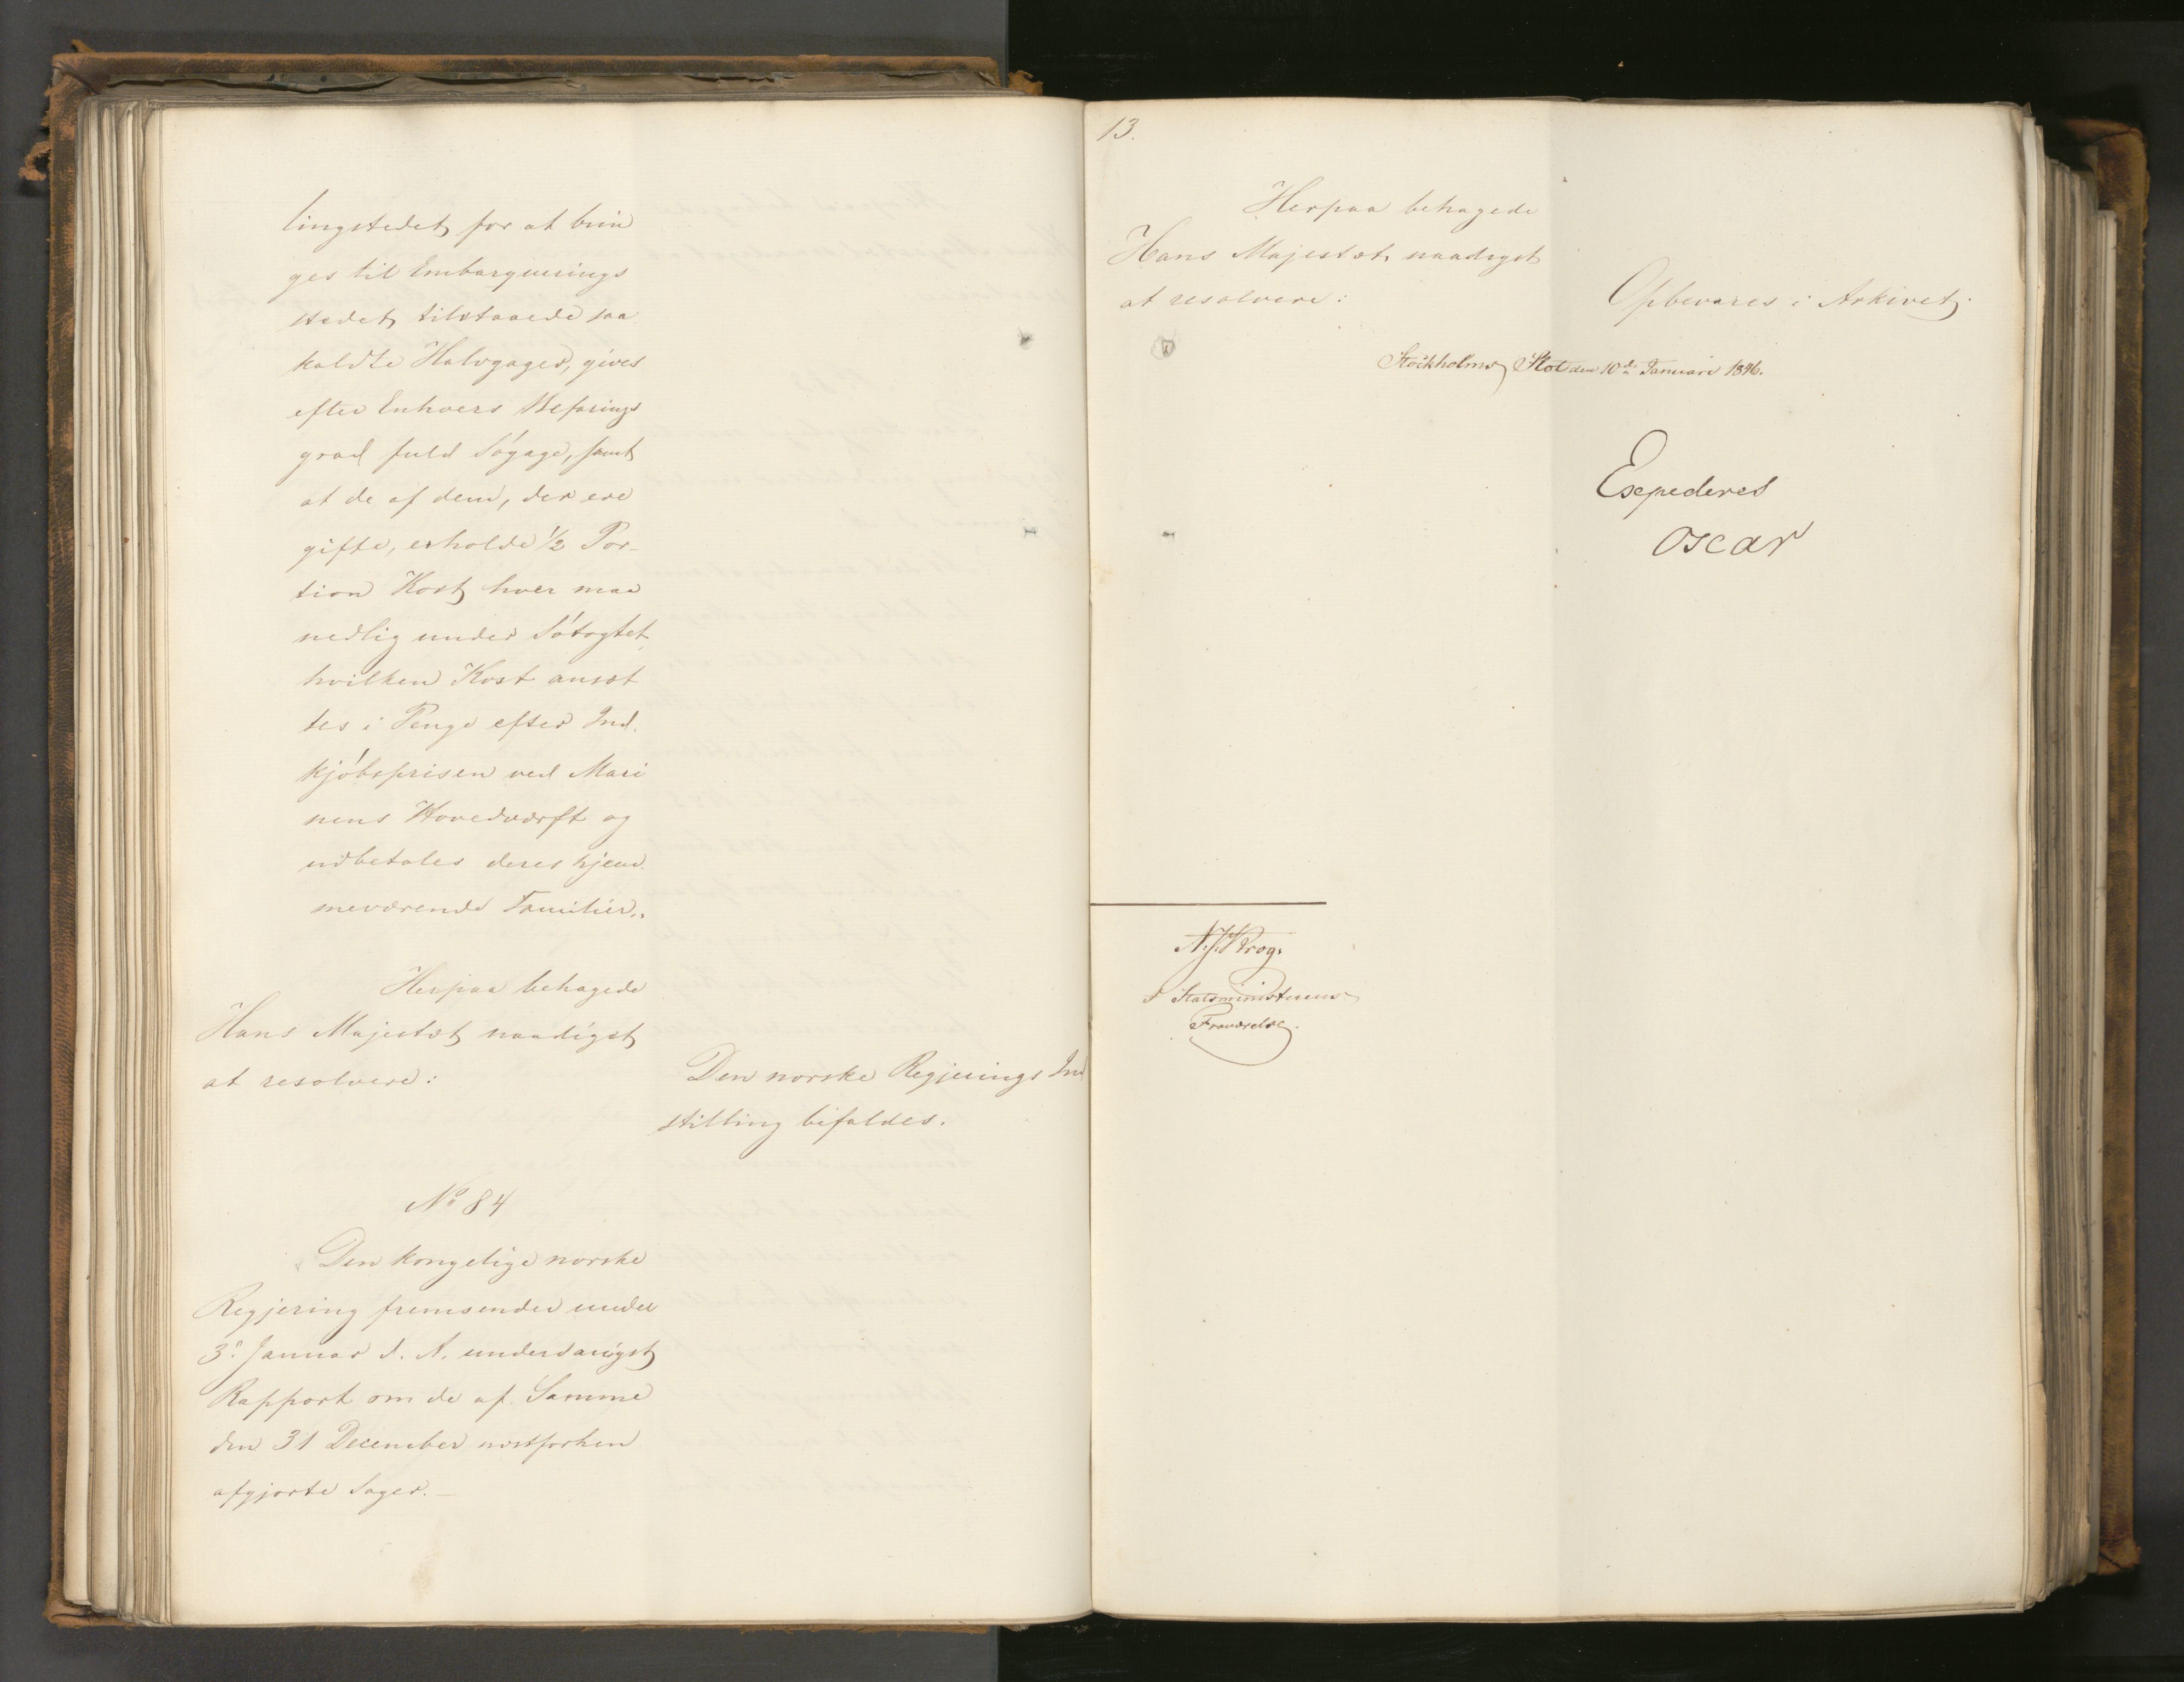 lingstedet for at brin
ges til Embarquerings
stedet tilstaaede saa
kaldte Halvgager, gives
efter Enhvers Befarings
grad fuld Søgage, samt
at de af dem, der ere
gifte, erholde 1/2 Por-
tion Kost hver maa
nedlig under Søtogtet,
hvilken Kost ansæt
tes i Penge efter Ind.
kjøbsprisen ved Mari
nens Hovedværft og
udbetales deres hjem
meværende Familier."
Herpaa behagede
Hans Majestæt naadigst
at resolvere:
Den norske Regjerings In
stilling bifaldes.
No 84
Den kongelige norske
Regjering fremsender under
3. Januar d. A. underdanigst
Rapport om de af Samme
den 31 December næstforhen
afgjorte Sager.-
13.
Herpaa behagede
Hans Majestæt naadigst
at resolvere:
Opbevares i Arkivet.
Stockholms Slot den 10de Januari 1846.
Expederes
Oscar
N.J. Krog.
I Statsministerens
Fraværelse.